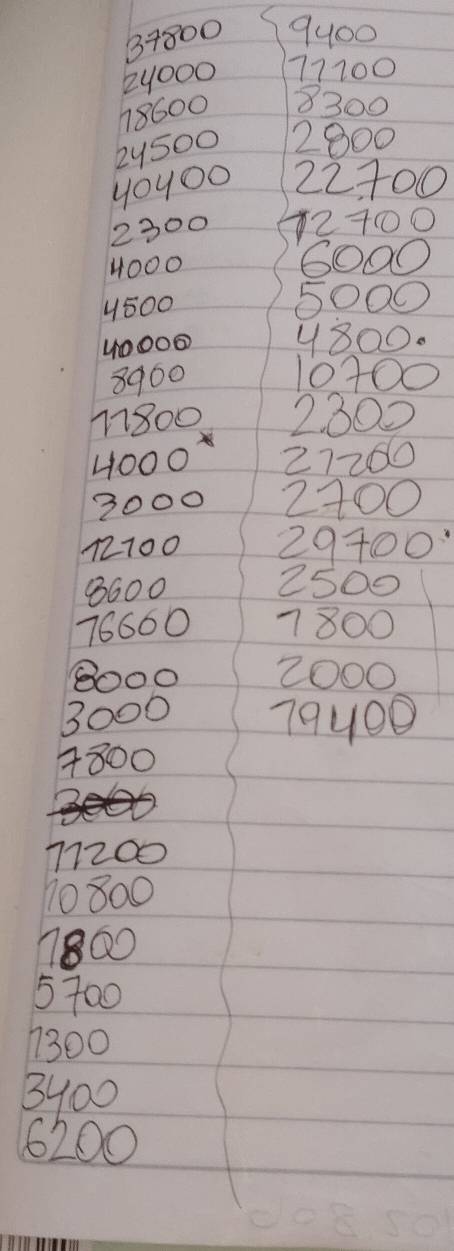 37800
24000
18600
24500
40400
2300
4000
4500
40000
8900
11800
4000
3000
12100
8600
16600
8000
3000
7800
3000
11200
10800
1800
5700
1300
3400
6200
9400
11100
8300
2800
22700
12700
6000
5000
4800.
10700
2300
21200
2700
29700
2500
1800
2000
19400